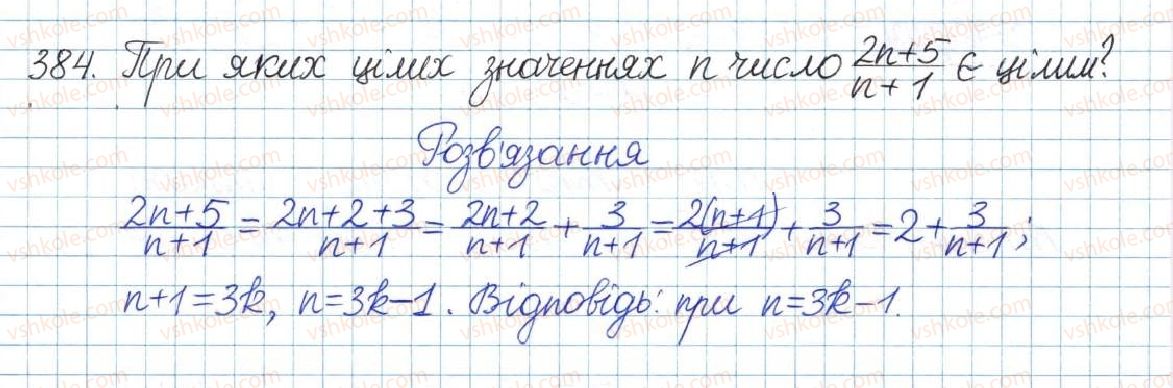 384. При яких цілих значеннях n число (2n+5)/(n+1) є цілим?
Розв'язання
(2n+5)/(n+1) = (2n+2+3)/(n+1) = (2n+2)/(n+1) + 3/(n+1) = 2(n+1)/(n+1) + 3/(n+1) = 2 + 3/(n+1);
n+1=3k, n=3k-1. Відповідь: при n=3k-1.
vshkole.com